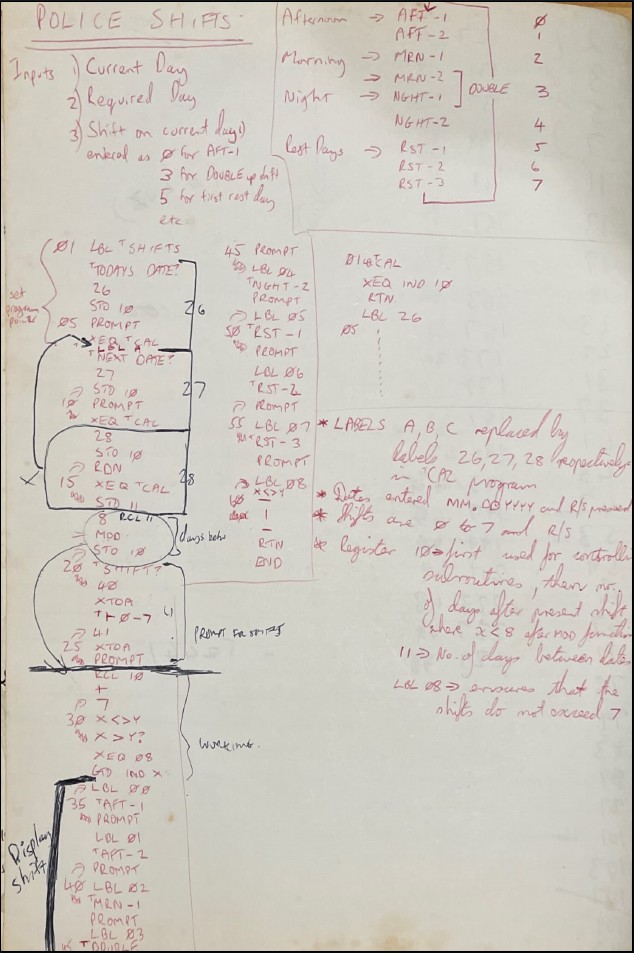 POLICE SHIFTS.
Inputs 1) Current Day
2) Required Day
3) Shift on current day
entered as Ø for AFT-1
3 for DOUBLE up shift
5 for first rest day
etc
Afternoon → AFT-1 Ø
AFT-2 1
Morning → MRN-1 2
→ MRN-2
Night → NGHT-1 DOUBLE 3
NGHT-2 4
Rest Days → RST-1 5
RST-2 6
RST-3 7
set program pointer
Ø1 LBL ᵀSHIFTS
ᵀTODAYS DATE?
26
STO 1Ø
Ø5 PROMPT
XEQ ᵀCAL
26
ᵀLBL A
ᵀNEXT DATE?
27
STO 1Ø
1Ø PROMPT
XEQ ᵀCAL
27
28
STO 1Ø
RDN
15 XEQ ᵀCAL
STO 11
28
X
8 RCL 11
MOD
STO 1Ø
days betw
2Ø ᵀSHIFT?
4Ø
XTOA
ᵀ⊢Ø-7
41
25 XTOA
PROMPT
PROMPT FOR SHIFTS
RCL 1Ø
+
7
3Ø X<>Y
X>Y?
XEQ Ø8
GTO IND X
WORKING.
LBL ØØ
35 ᵀAFT-1
PROMPT
LBL Ø1
ᵀAFT-2
PROMPT
4Ø LBL Ø2
ᵀMRN-1
PROMPT
LBL Ø3
ᵀDOUBLE
Display shift
45 PROMPT
LBL Ø4
ᵀNGHT-2
PROMPT
LBL Ø5
5Ø ᵀRST-1
PROMPT
LBL Ø6
ᵀRST-2
PROMPT
55 LBL Ø7
ᵀRST-3
PROMPT
LBL Ø8
X<>Y
6Ø –
1
–
RTN
END
Ø1 LBLᵀCAL
XEQ IND 1Ø
RTN
LBL 26
Ø5
* LABELS A, B, C replaced by
labels 26, 27, 28 respectively
in ᵀCAL program
* Dates entered MM.DDYYYY and R/S pressed
* Shifts are Ø to 7 and R/S
* Register 1Ø → first used for controlling
subroutines, then no.
of days after present shift
where x<8 after MOD function
11 → No. of days between dates
LBL Ø8 → ensures that the
shifts do not exceed 7